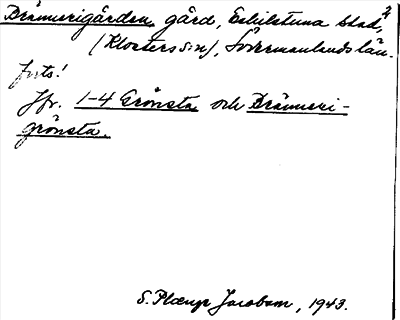 Brännerigården, gård, Eskilstuna stad, 2
(Klosters sn), Södermanlands län.
forts!
Jfr. 1-4 Grönsta och Bränneri-
grönsta.
S. Jacobson, 1943.